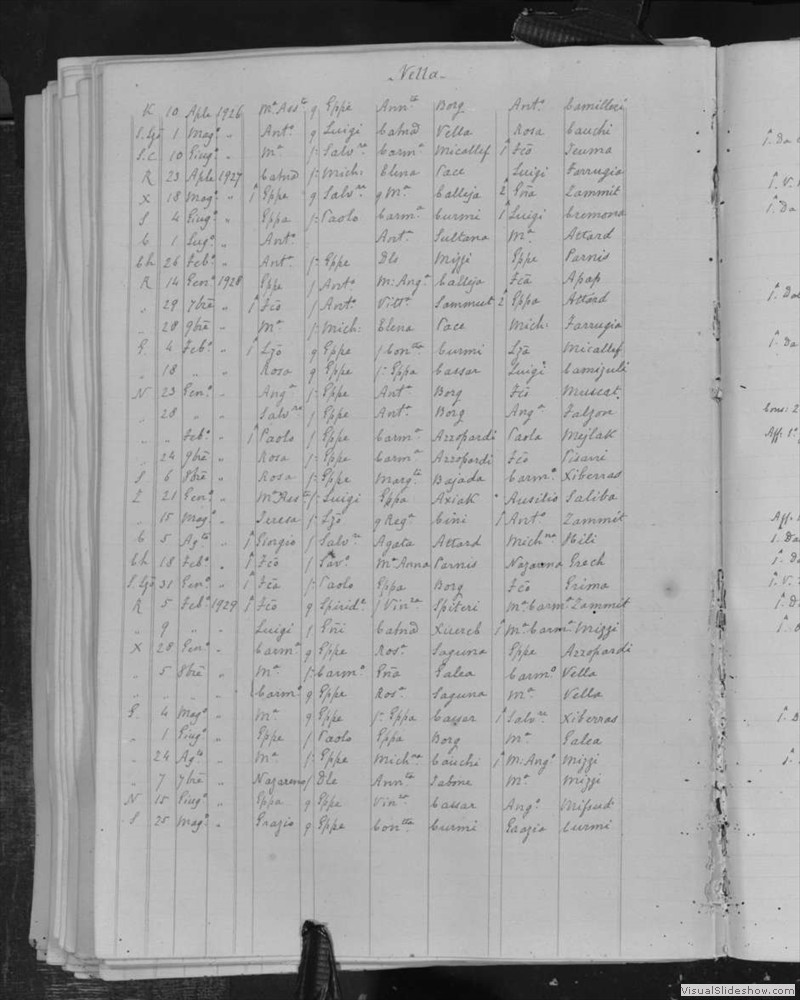 Vella
K 10 Aple 1926 Ma Assta q Eppe Anntta Borg Anto Camilleri
S.Gż 1 Mago " Anto q Luigi Catnd Vella Rosa Cauchi
S.C. 10 Giugo " Ma f: Salvre Carma Micallef 1 Fco Seuma
R 23 Aple 1927 Catnd f: Mich: Elena Pace Luigi Farrugia
X 18 Mago " 1 Eppe q Salvre q Ma Calleja 2 Gña Zammit
S 4 Giugo " Eppa f: Paolo Carma Curmi 1 Luigi Cremona
C 1 Lugo " Anto Anta Sultana Ma Attard
Ch 26 Febo " Anta f: Eppe Dle Mizzi Eppe Parnis
R 14 Geno 1928 Eppe f Anto M: Anga Calleja Fca Apap
" 29 7bre " 1 Fco f Anto Vitta Sammut 2 Eppa Attard
" 28 9bre " Ma f: Mich: Elena Pace Mich: Farrugia
G. 4 Febo " 1 Ljo q Eppe f Contta Curmi Lja Micallef
" 18 " " Rosa q Eppe f: Eppa Cassar Luigi Camizuli
N 23 Geno " Anga f: Eppe Anta Borg Fco Muscat
" 28 " " Salvre f Eppe Anta Borg Anga Falzon
" " Febo " 1 Paolo f Eppe Carma Azzopardi Paola Mejlak
" 24 9bre " Rosa f: Eppe Carma Azzopardi Fco Pisani
S 6 8bre " Rosa f: Eppe Margta Bajada Carmo Xiberras
L 21 Geno " Ma Assta f: Luigi Eppa Axiak " Ausilio Saliba
" 15 Mago " Teresa f Ljo q Rega Cini 1 Anto Zammit
C 5 Agto " 1 Giorgio f Salvre Agata Attard Michna Hili
Ch 18 Febo " 1 Fco f Savo Ma Anna Parnis Nazarena Grech
S.Gż 31 Geno " 1 Fca f: Paolo Eppa Borg Fco Grima
R 5 Febo 1929 1 Fco q Spiride f Vinza Spiteri Ma Carma Zammit
" 9 " " Luigi f Gñi Catnd Xuereb 1 Ma Carma Mizzi
X 28 Geno " Carmo q Eppe Rosa Saguna Eppe Azzopardi
" 5 8bre " Ma f: Carmo Gña Galea Carmo Vella
" " " " Carmo q Eppe Rosa Saguna Ma Vella
G. 4 Mago " Ma q Eppe f: Eppa Cassar 1 Salvre Xiberras
" 1 Giugo " Eppe f Paolo Eppa Borg Ma Galea
" 24 Agto " Ma f: Eppe Michna Cauchi 1 M: Ango Mizzi
" 7 7bre " Nazareno f Dle Anntta Tabone Ma Mizzi
N 15 Giugo " Eppa q Eppe Vinza Cassar Ango Mifsud
S 25 Mago " Grazio q Eppe Contta Curmi Grazia Curmi
VisualSlideshow.com